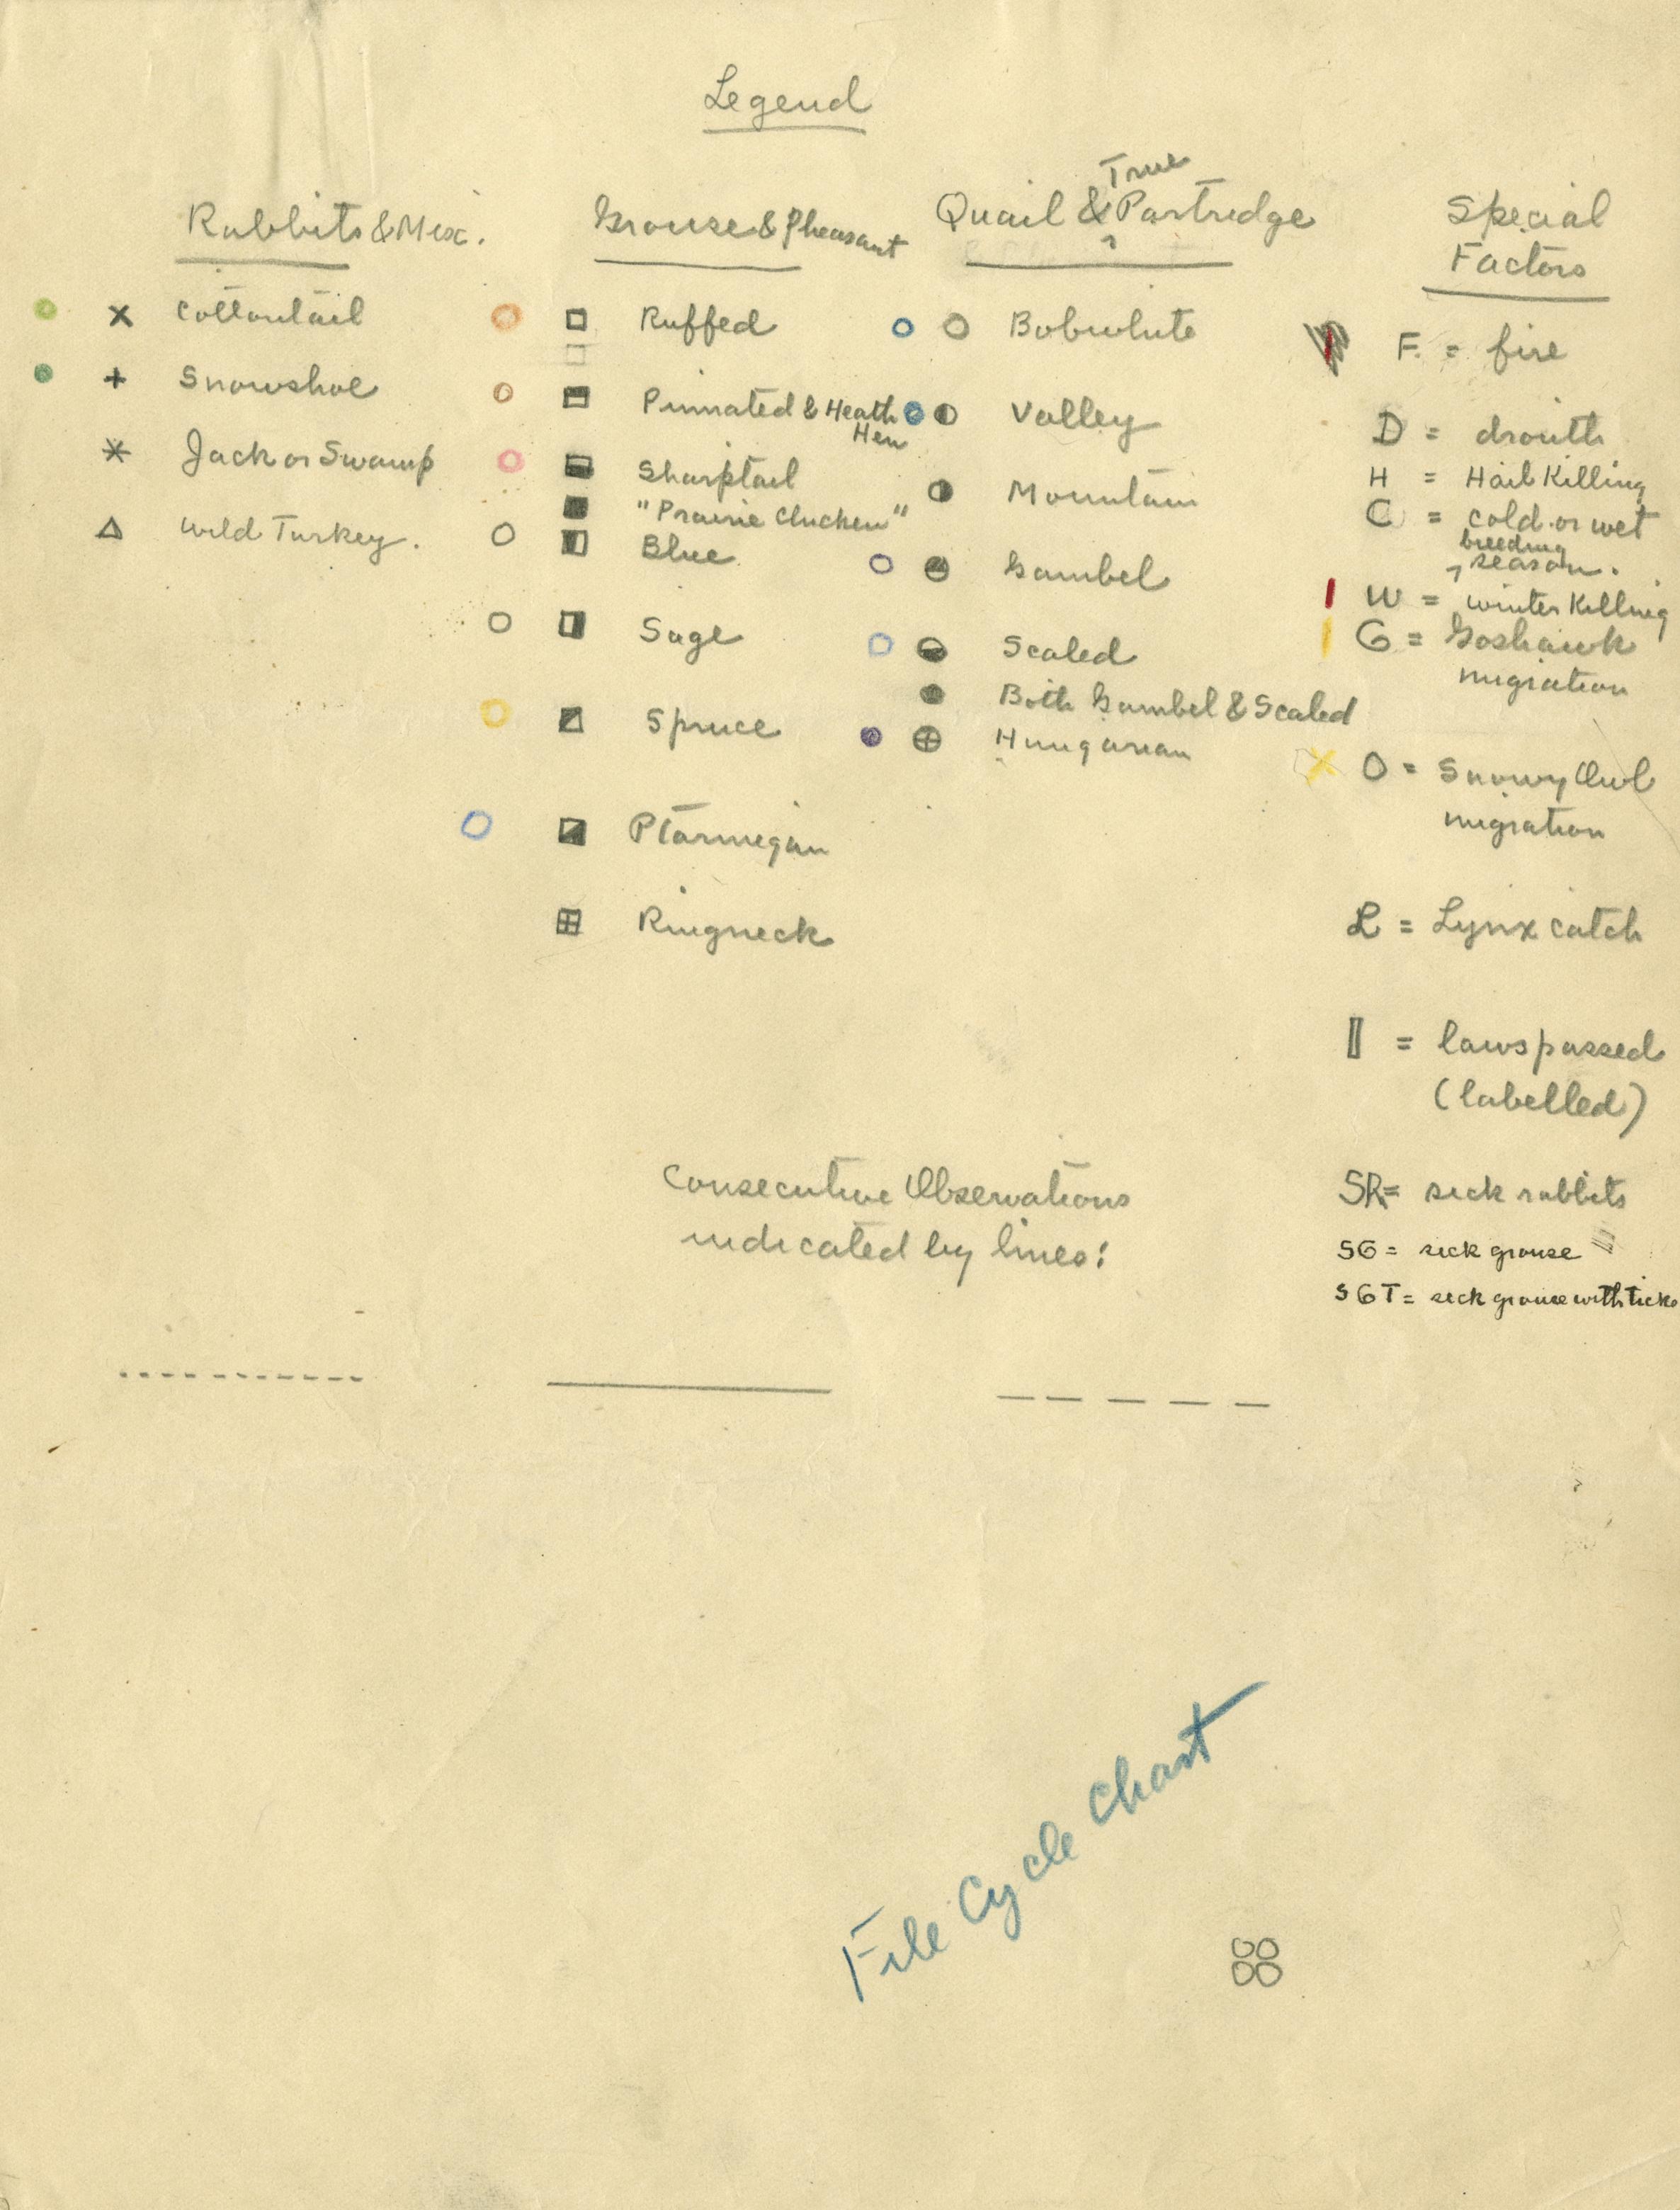 Legend
Rabbits & Misc.
Cottontail
Snowshoe
Jack or Swamp
Wild Turkey.
Grouse & Pheasant
Ruffed
Pinnated & Heath
Hen
Sharptail
"Prairie Chicken"
Blue
Sage
Spruce
Ptarmigan
Ringneck
True
Quail & Partridge
Bobwhite
Valley
Mountain
Gambel
Scaled
Both Gambel & Scaled
Hungarian
Special
Factors
F. = fire
D = drouth
H = Hail Killing
C = cold or wet
breeding
season.
W = winter Killing
G = Goshawk
migration
O = Snowy Owl
migration
L = Lynx catch
= laws passed
(labelled)
SR = sick rabbits
SG = sick grouse
SGT = sick grouse with ticks
Consecutive Observations
indicated by lines:
File Cycle Chart